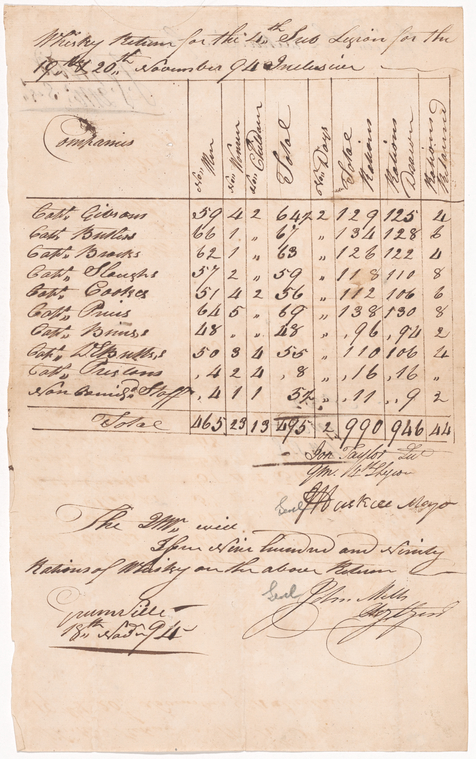 Whisky Return for the 4th Sub Legion for the
19th & 20th November 94 Inclusive
Companies Non Men Non Women Non Children Total Non Days Total Rations Rations Drawn Rations Retained
Capt. Gibsons 59 4 2 64½ 2 129 125 4
Capt. Butlers 66 1 „ 67 „ 134 128 6
Capt. Brocks 62 1 „ 63 „ 126 122 4
Capt. Sloughs 57 2 „ 59 „ 118 110 8
Capt. Cookes 51 4 2 56 „ 112 106 6
Capt. Prius 64 5 „ 69 „ 138 130 8
Capt. 48 „ „ 48 „ 96 94 2
Capt. Butlers 50 3 4 55 „ 110 106 4
Capt. Prestons 4 2 4 8 „ 16 16 „
Non Commisd. Staff 4 1 1 5½ „ 11 9 2
Total 465 23 13 495 2 990 946 44
Taylor
4th
Haskell Major
The will
Issue Nine hundred and Ninety
Rations of Whisky on the above Return
John Mills
Greenville
18th Novr. 94